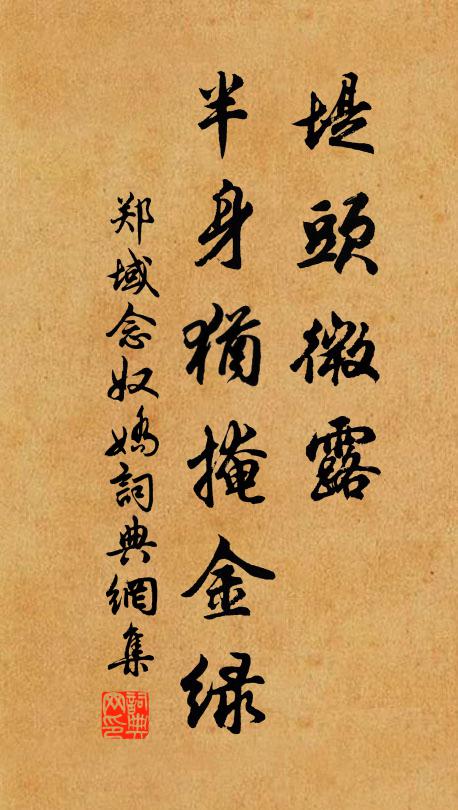 堤頭微露
半身猶掩金緑
郑域念奴嬌詞典網集
詞典网印